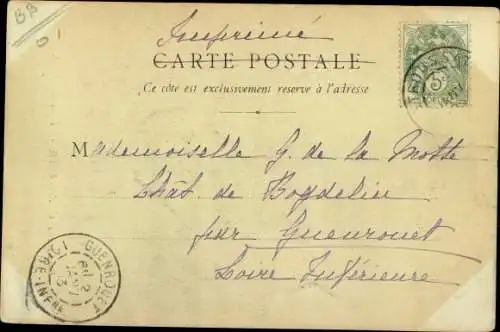 BB
Imprimé
CARTE POSTALE
Ce côté est exclusivement réservé à l'adresse
Mademoiselle G. de la Motte
Chât. de Bogdelin
par Guenrouet
Loire Inférieure
GUENROUET